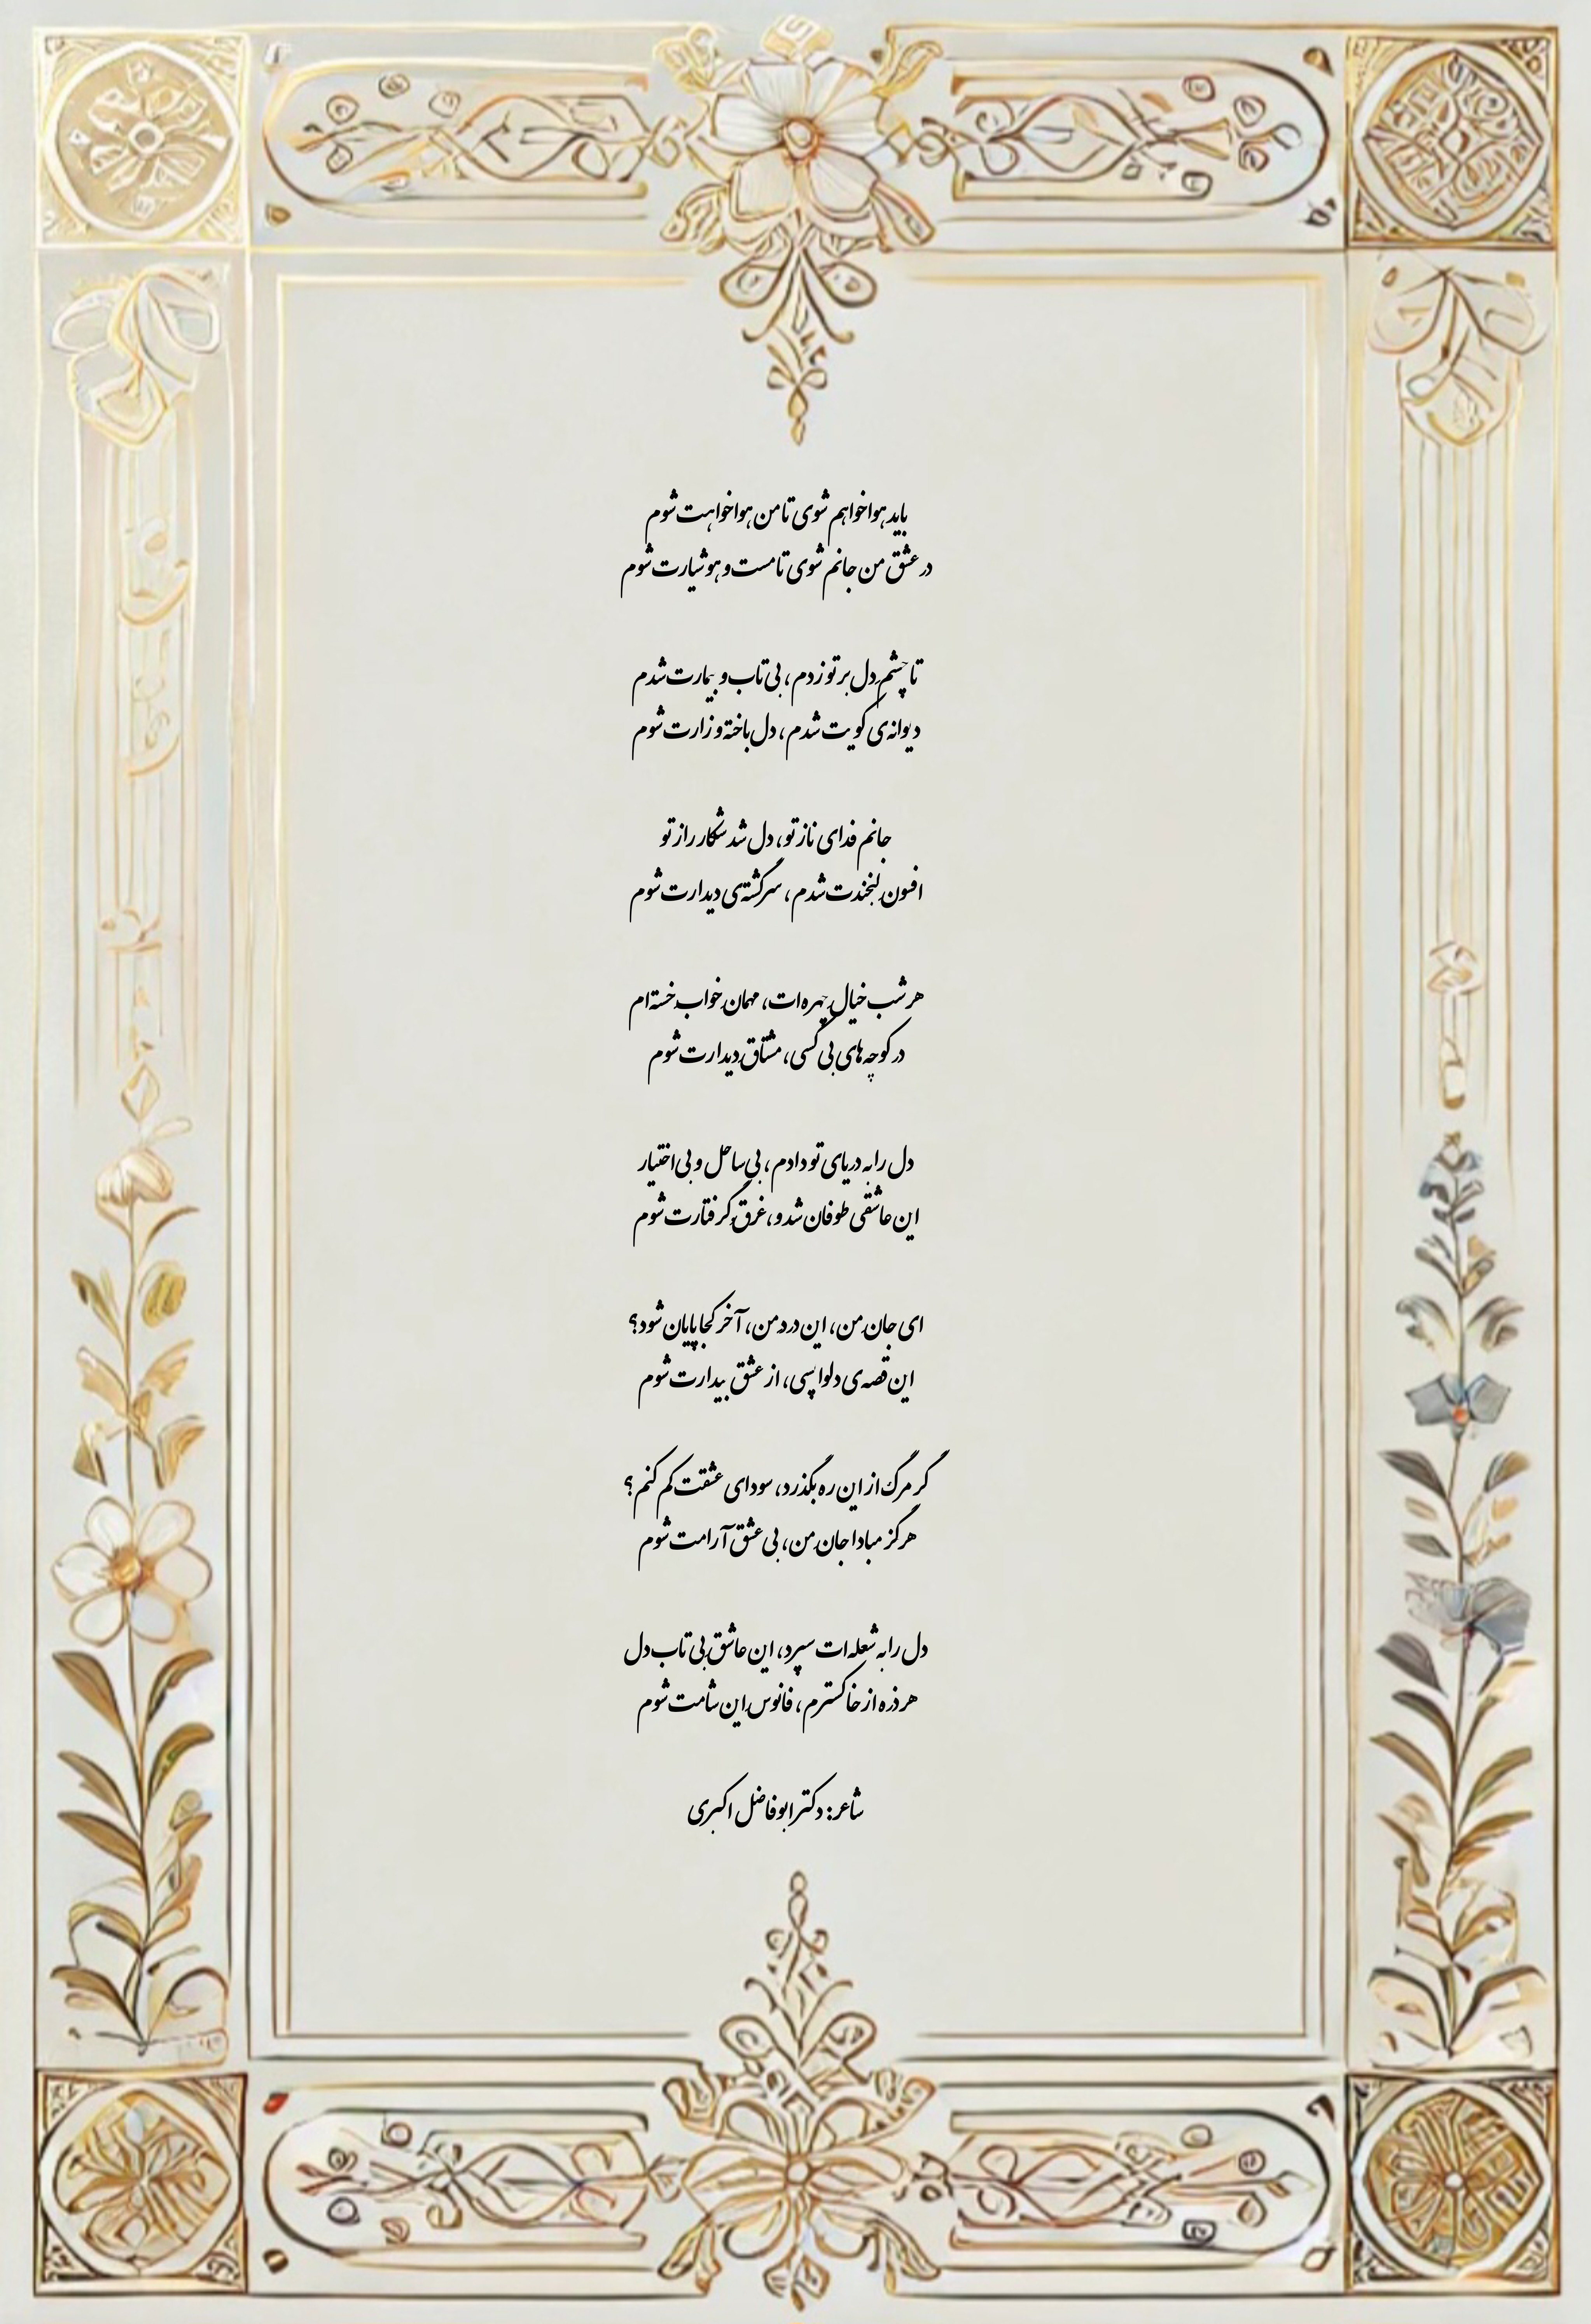 باید هواخواهم شوی تا من هواخواهت شوم
در عشق من جانم شوی تا مست و هوشیارت شوم
تا چشمِ دل بر تو زدم، بی تاب و بیمارت شدم
دیوانه‌ی کویت شدم، دل باخته و زارت شوم
جانم فدای ناز تو، دل شد شکار راز تو
افسون لبخندت شدم، سرگشته‌ی دیدارت شوم
هر شب خیالِ چهره‌ات، مهمان خواب خسته‌ام
در کوچه‌های بی کسی، مشتاقِ دیدارت شوم
دل را به دریای تو دادم، بی ساحل و بی اختیار
این عاشقی طوفان شد و، غرقِ گرفتارت شوم
ای جانِ من، این دردِ من، آخر کجا پایان شود؟
این قصه‌ی دلواپسی، از عشق بیدارت شوم
گر مرگ از این ره بگذرد، سودای عشقت کم کنم؟
هرگز مبادا جانِ من، بی عشق آرامت شوم
دل را به شعله‌ات سپرد، این عاشقِ بی تاب دل
هر ذره از خاکسترم، فانوسِ این شامت شوم
شاعر: دکتر ابوفاضل اکبری